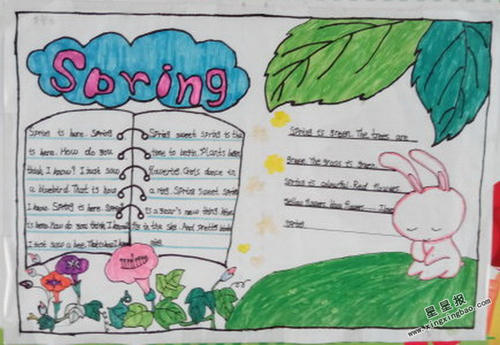 Spring
Spring is here. Spring
is here. How do you
think I know? I just saw
a bluebird. That is how
I know. Spring is here. Spring
is here. How do you think I know
I just saw a bee. That is how I know
Spring sweet spring is the
time to begin. Plants
flowers Girls dance in
a ring. Spring Sweet Spring
is a year's new thing.
in the sky. And pretty
Spring is green. The trees are
green. The grass is green.
Spring is colourful. Red flowers.
Yellow flowers. flowers
spring
星星报
www.xingxingbao.com